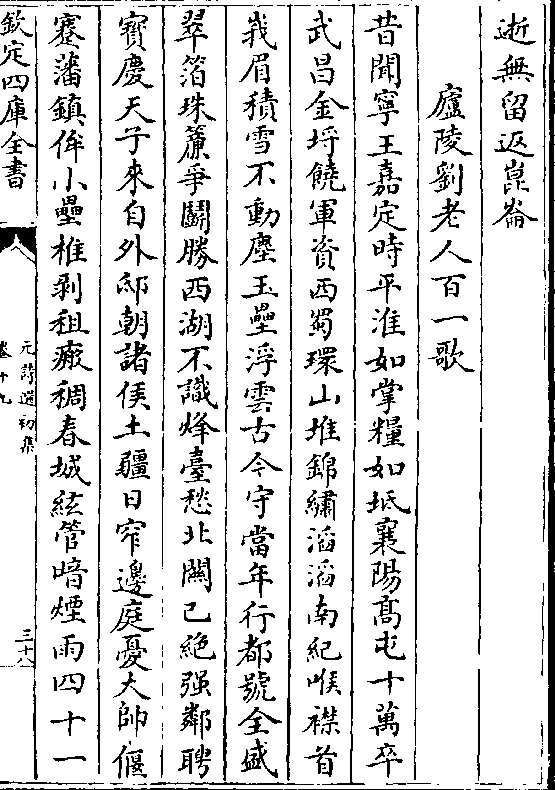 逝無留返崑崙
廬陵劉老人百一歌
昔聞寧王嘉定時平淮如掌糧如坻襄陽高屯十萬卒
武昌金埒饒軍資西蜀環山堆錦繡滔滔南紀喉襟首
峩眉積雪不動塵玉壘浮雲古今守當年行都號全盛
翠箔珠簾爭鬬勝西湖不識烽臺愁北闕已絶强鄰聘
寳慶天子來自外邸朝諸侯土疆日窄邊庭憂大帥偃
蹇藩鎮侔小壘椎剥租瘢稠春城絃管暗煙雨四十一
欽定四庫全書
元詩選初集
卷十九
三十八